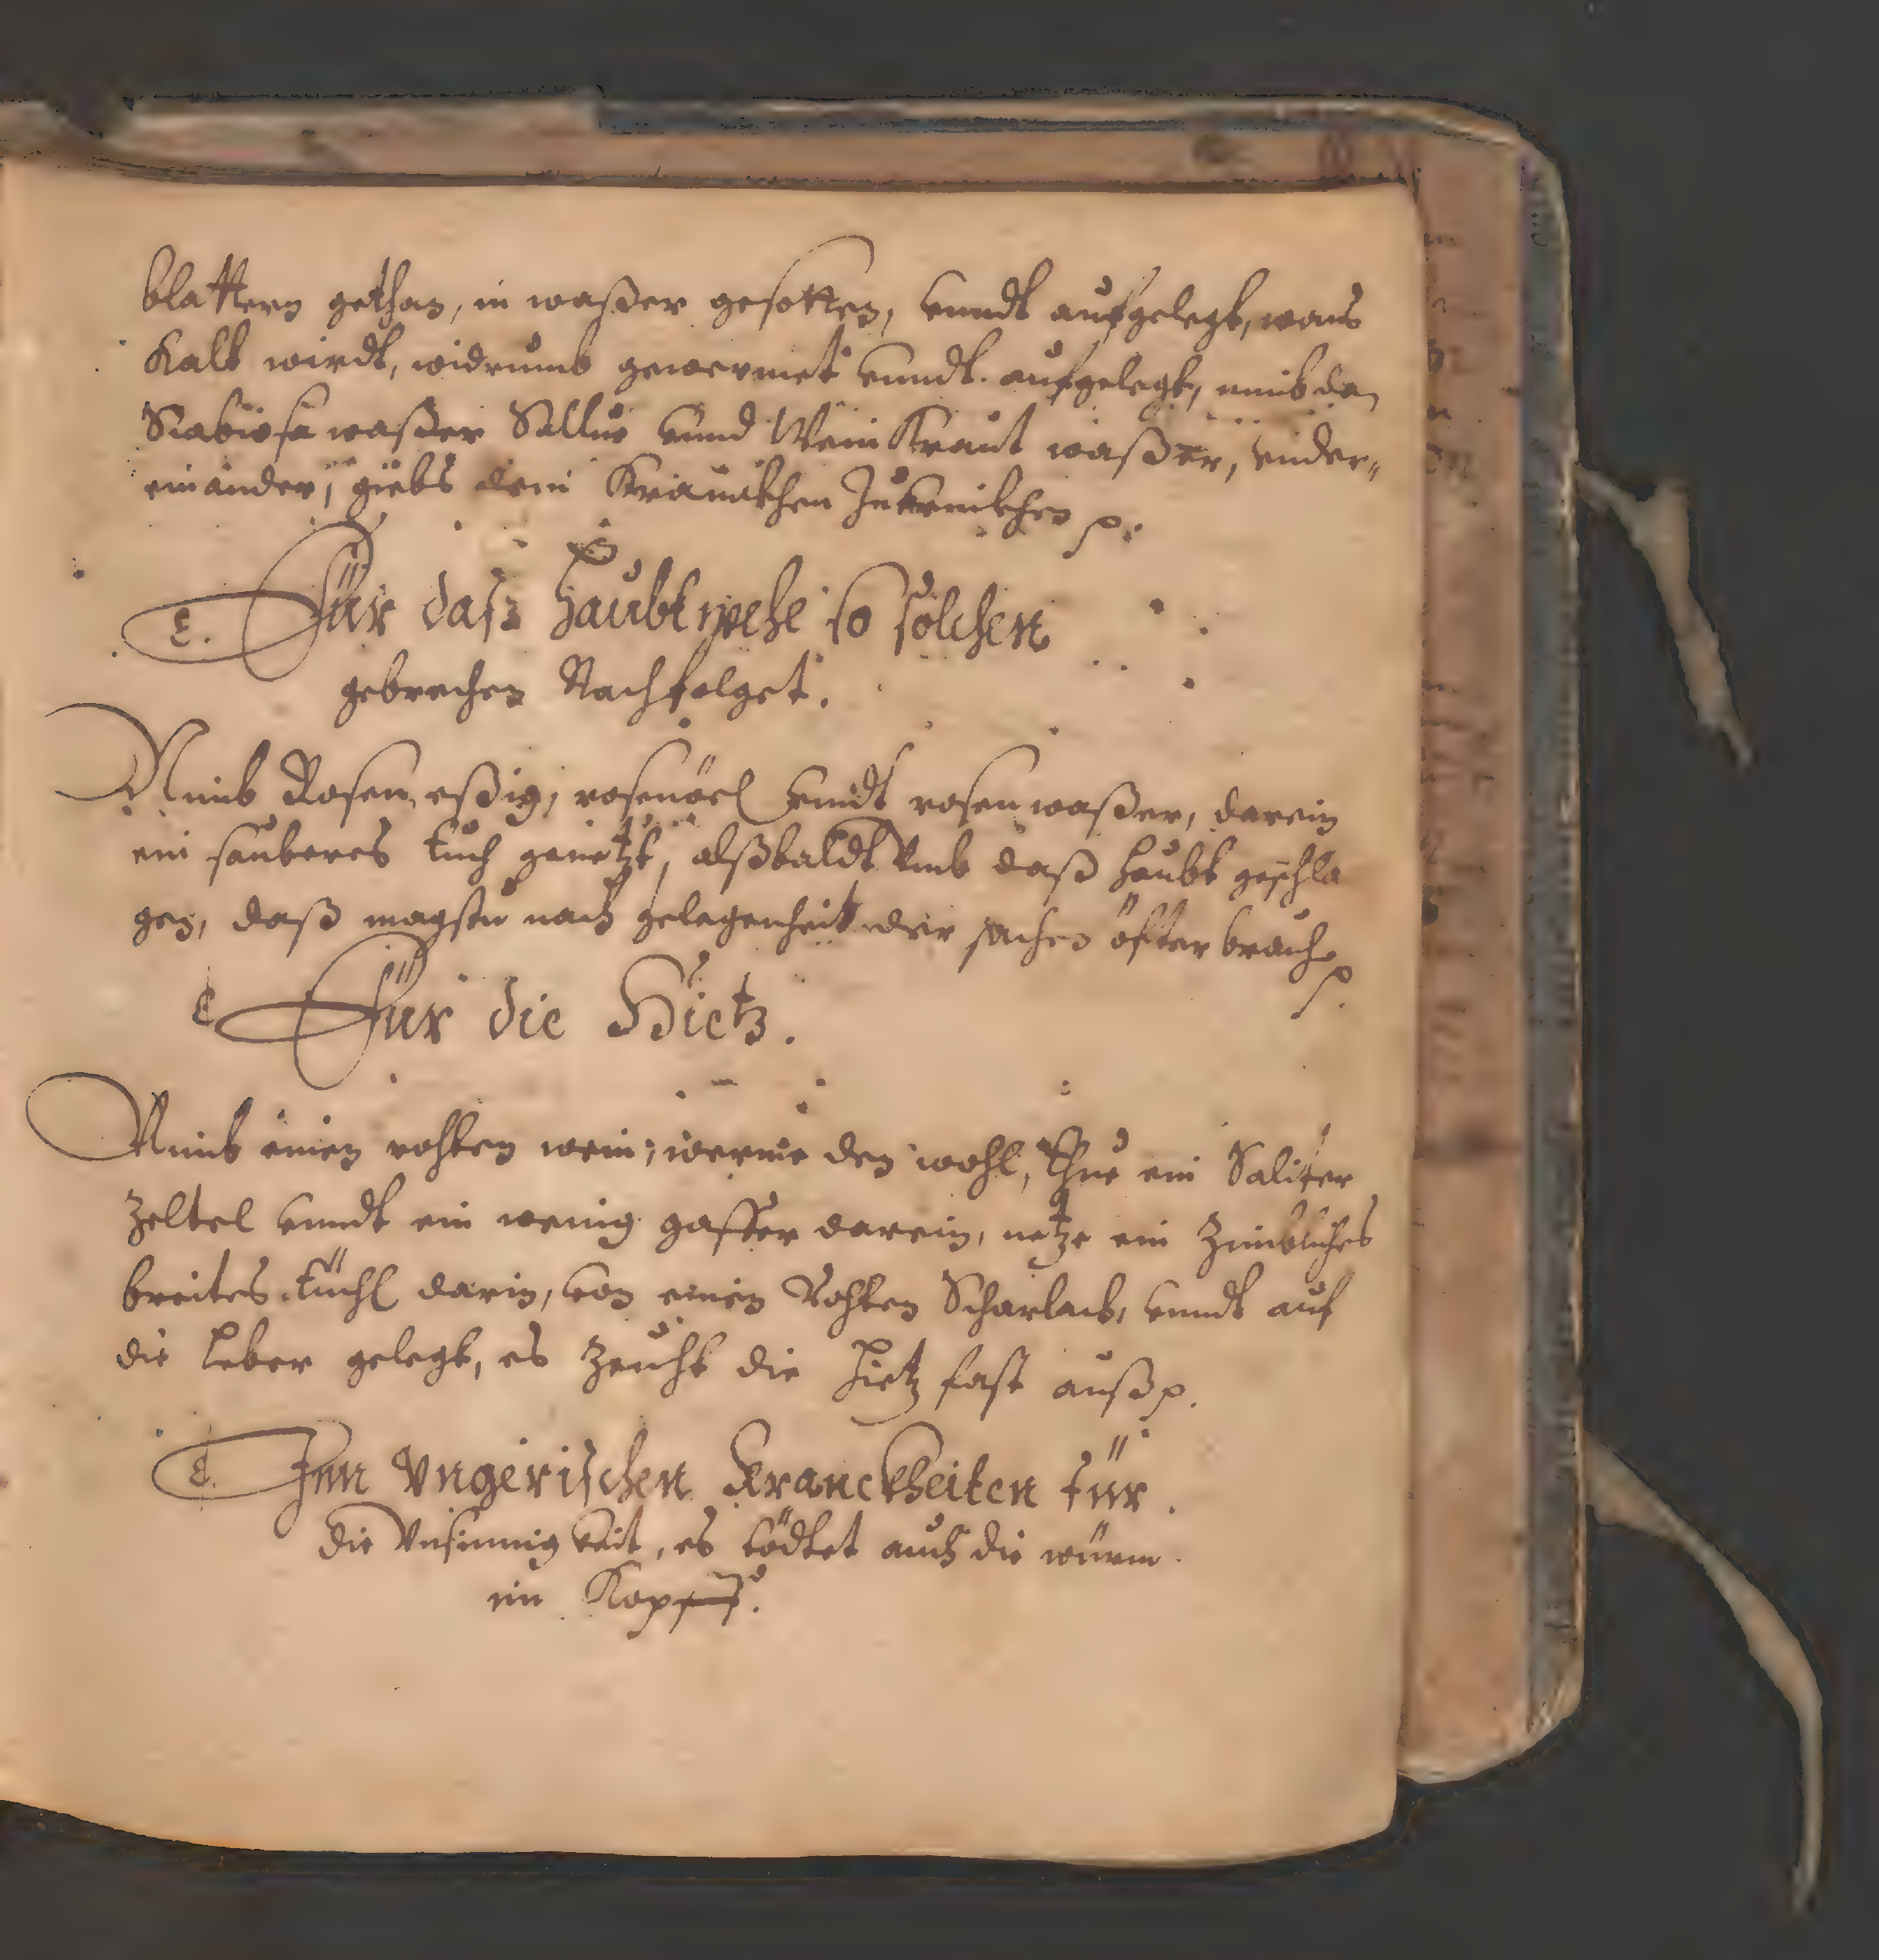 blattern gethan, in waßer gesotten, vnndt aufgelegt, wans
Kalt wirdt, widrumb gewermet vnndt aufgelegt, nimb dan
Scabiosa waßer vnnd Wein Kraut waßer, vnder„
einander, giebs dem Kranckhen Zutrinckhen p.
Für daß haubtwehe so solchen
gebrechen Nachfolget.
Nimb Rosen eßig, rosenöel vnndt rosen waßer, darein
ein sauberes tuch genetzt, alßbaldt vmb daß haubt geschla
gen, daß magstu nach gelegenheit der sachen öfter brauch.
p.
Für die Hietz.
Nimb einen rohten wein, werme den wohl, Thue ein Saliter
Zeltel vnndt ein wenig gaffer darein, netze ein Zimbliches
breites tüchl darin, von einen Rohten Scharlack, vnndt auf
die Leber gelegt, es Zeucht die Hietz fast auß p.
Inn Vngerischen Kranckheiten für
die Vnsinnigkeit, es tödtet auch die würm
im Kopff.